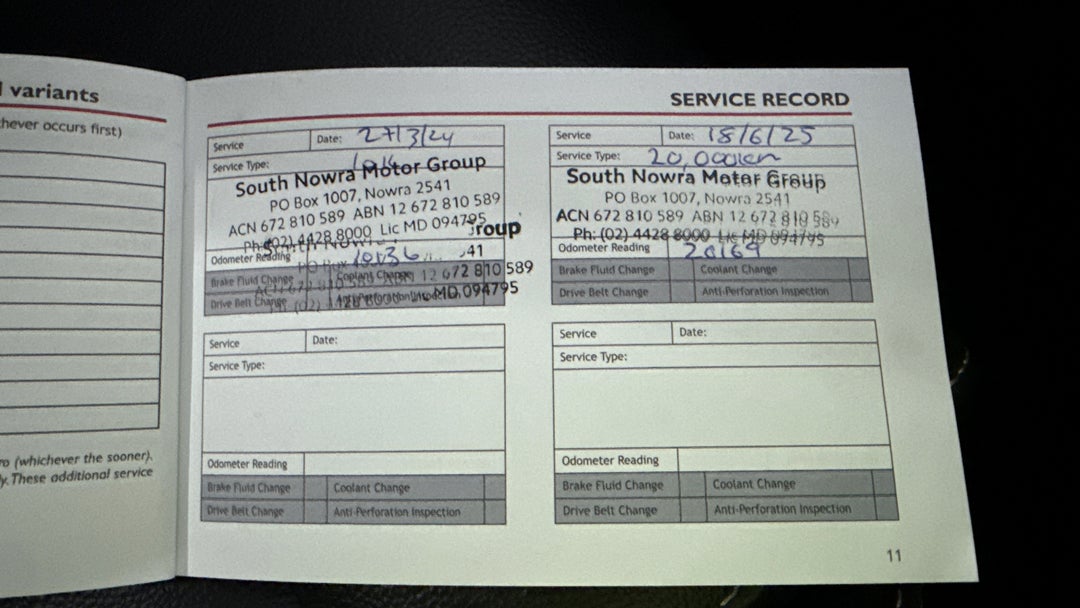 variants
hever occurs first)
ro (whichever the sooner).
y. These additional service
SERVICE RECORD
Service Date: 27/3/24
Service Type: 10k
South Nowra Motor Group
PO Box 1007, Nowra 2541
ACN 672 810 589 ABN 12 672 810 589
Ph: (02) 4428 8000 Lic MD 094795
roup
Odometer Reading 41
Brake Fluid Change Coolant Change 12 672 810 589
Drive Belt Change Anti-Perforation Inspection MD 094795
Service Date: 18/6/25
Service Type: 20,000km
South Nowra Motor Group
PO Box 1007, Nowra 2541
ACN 672 810 589 ABN 12 672 810 589
Ph: (02) 4428 8000 Lic MD 094795
Odometer Reading 20169
Brake Fluid Change Coolant Change
Drive Belt Change Anti-Perforation Inspection
Service Date:
Service Type:
Odometer Reading
Brake Fluid Change Coolant Change
Drive Belt Change Anti-Perforation Inspection
Service Date:
Service Type:
Odometer Reading
Brake Fluid Change Coolant Change
Drive Belt Change Anti-Perforation Inspection
11